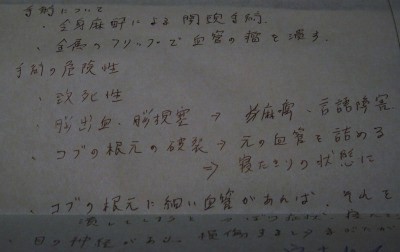 手術について
・全身麻酔による開頭手術
・金属のクリップで血管の瘤を潰す。
手術の危険性
・致死性
・脳出血、脳梗塞 → 片麻痺・言語障害
・コブの根元の破裂 → 元の血管を詰める
⇒ 寝たきりの状態に
・コブの根元に細い血管があれば、それを